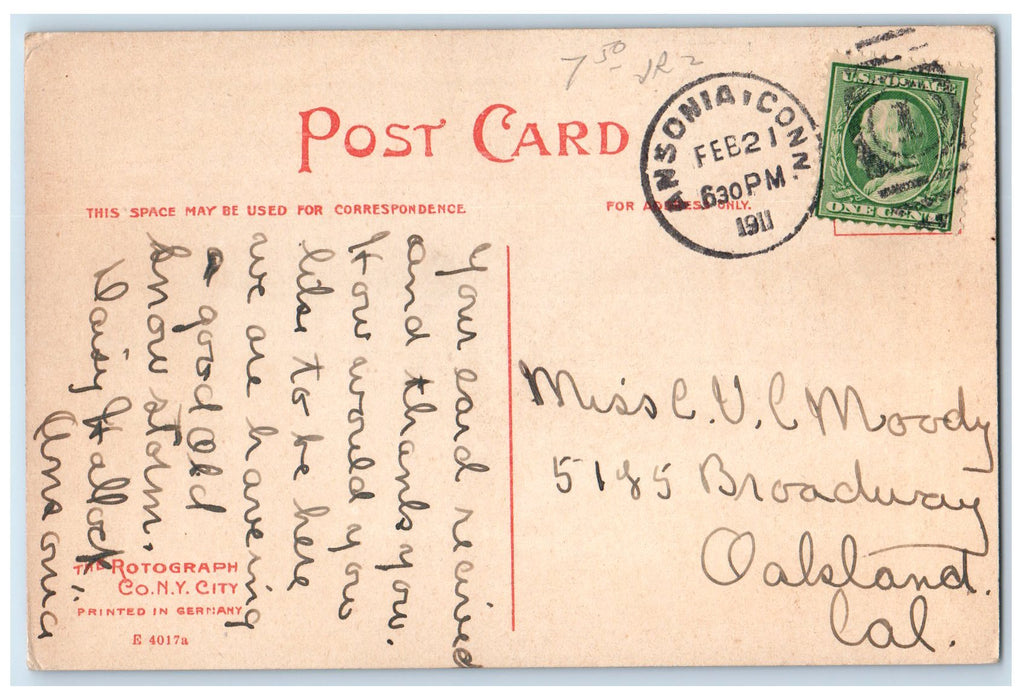 7 50 JR 2
POST CARD
ANSONIA, CONN.
FEB 21
630 PM
1911
U.S. POSTAGE
ONE CENT
THIS SPACE MAY BE USED FOR CORRESPONDENCE.
FOR ADDRESS ONLY.
Your card recived
and thanks you.
How would you
like to be here
we are haveing
a good Old
Snow storm.
Daisy Hallock
Ansonia
Miss C. V. C Moody
5185 Broadway
Oakland.
Cal.
THE ROTOGRAPH
CO. N.Y. CITY
PRINTED IN GERMANY
E 4017a